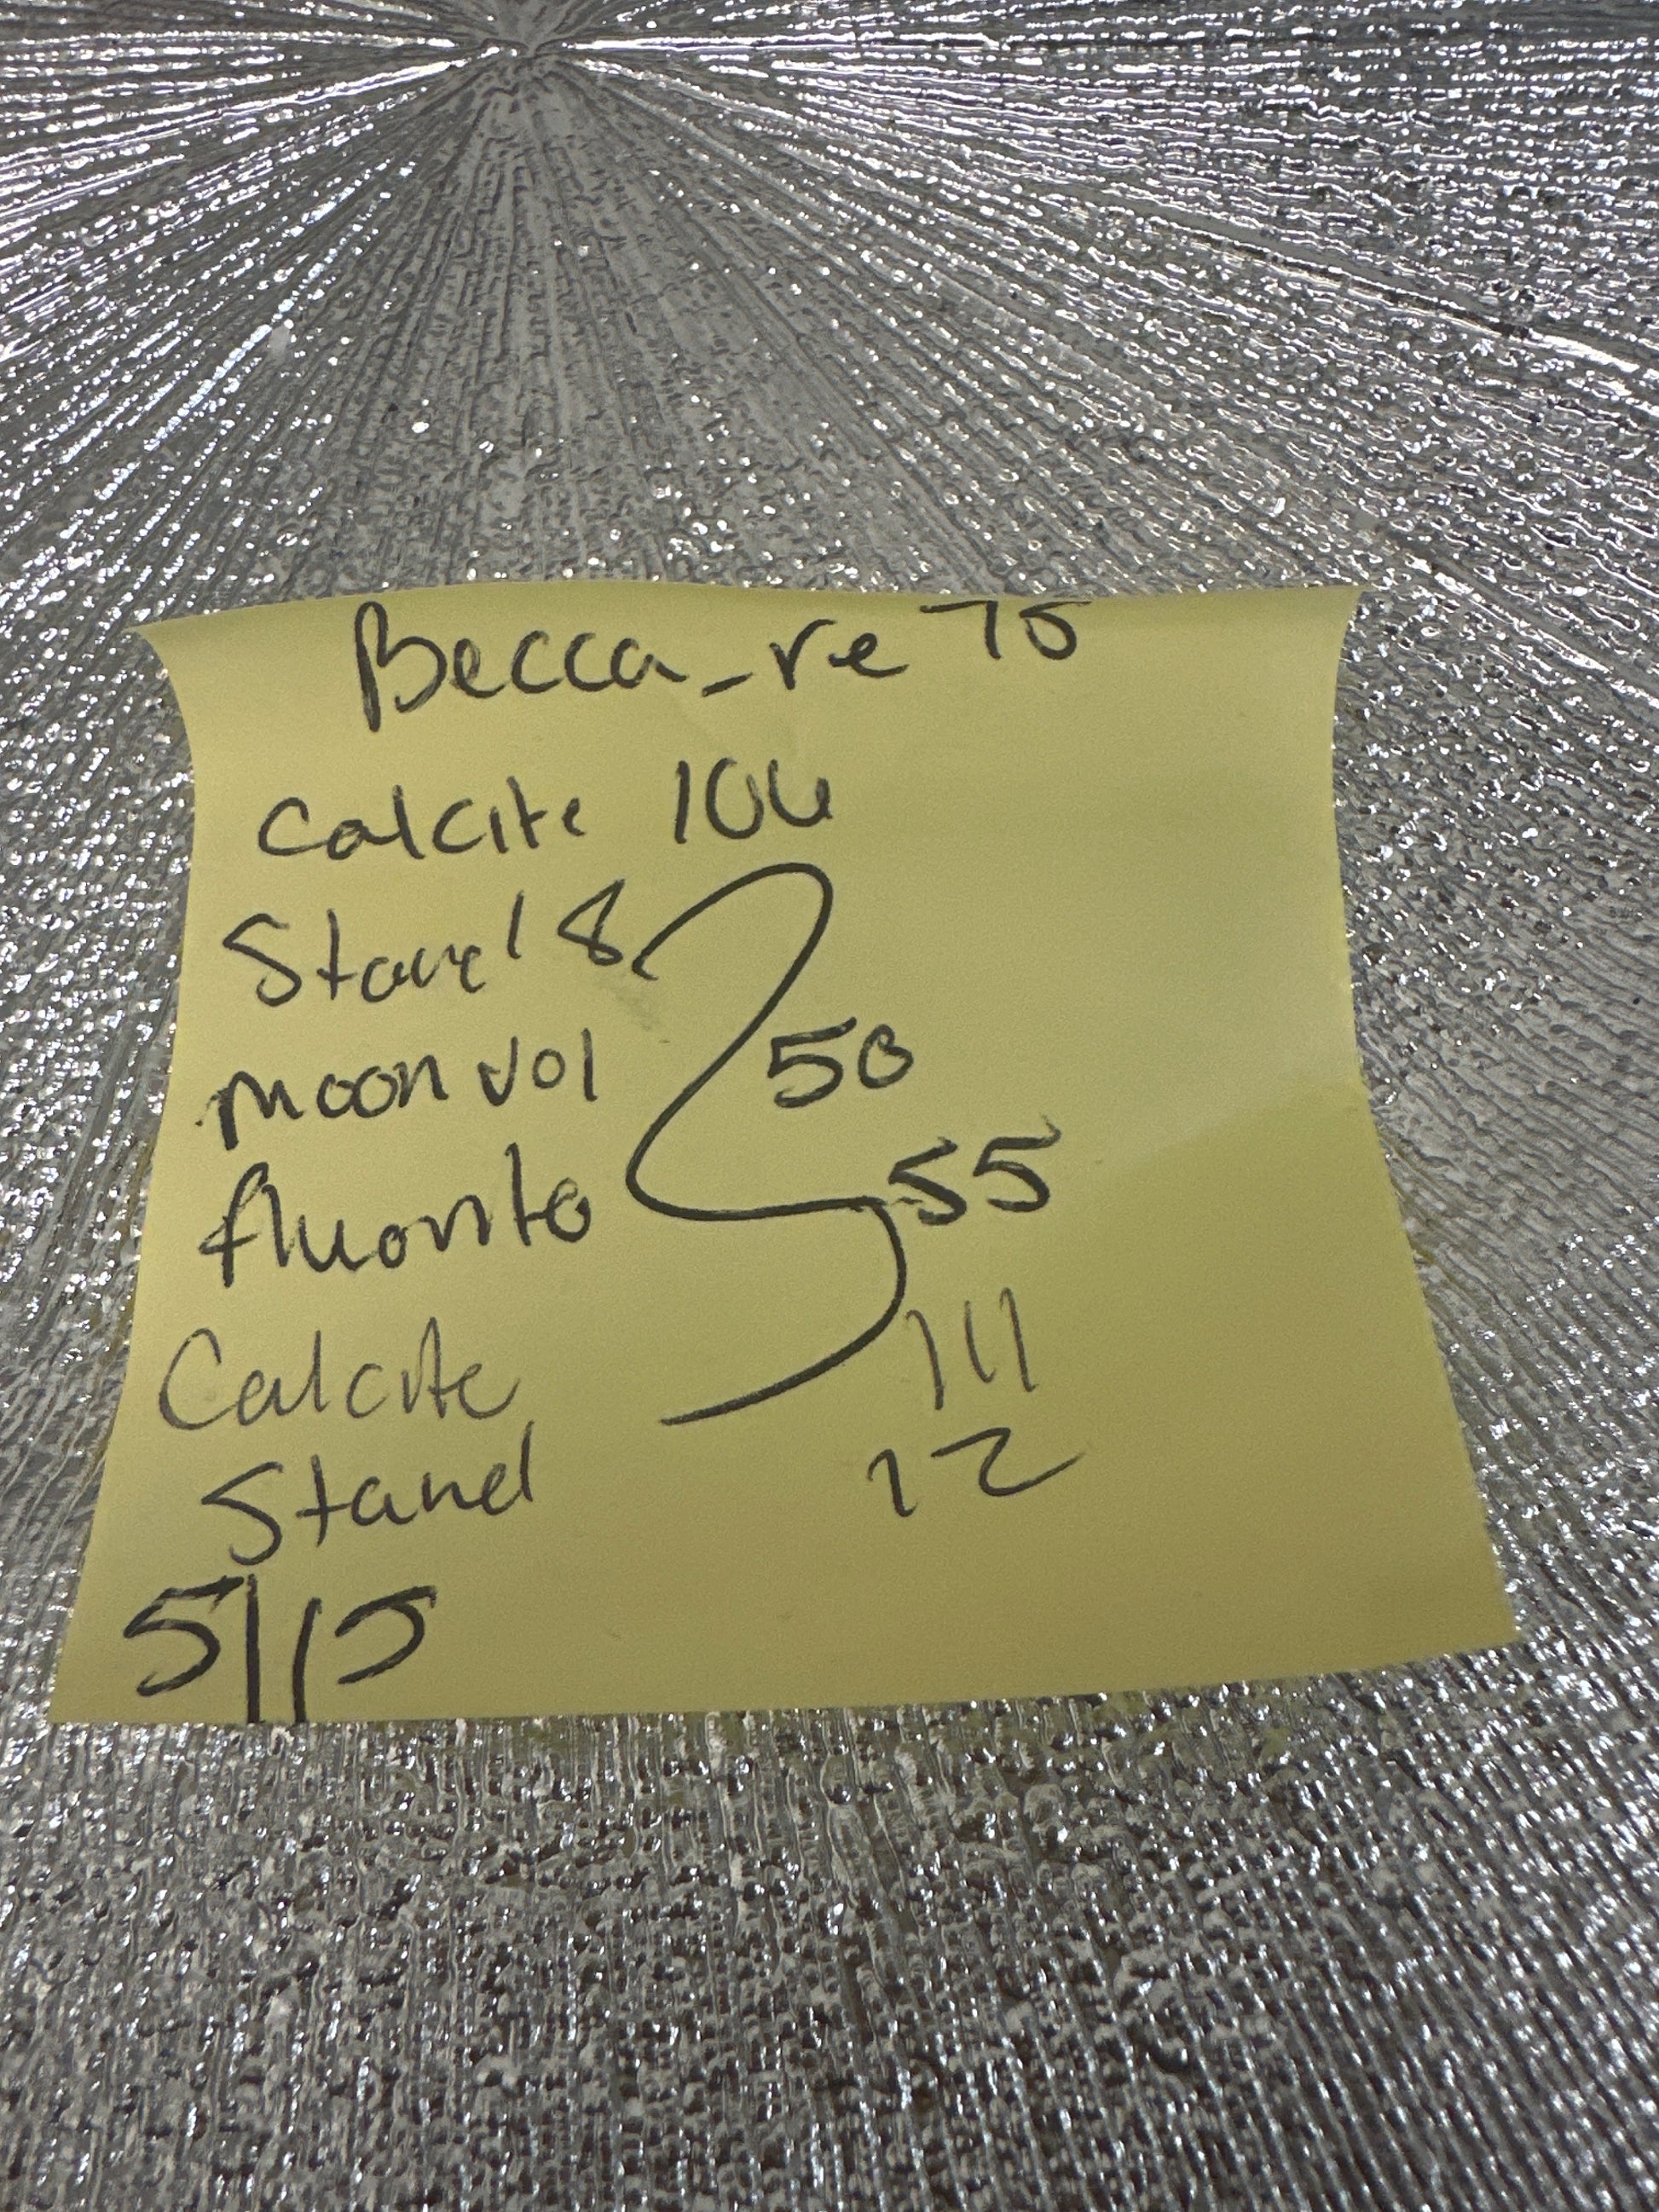 Becca_re 75
Calcite 106
Stand 8
moon vol 50
fluorite 55
Calcite 111
Stand 12
5/15